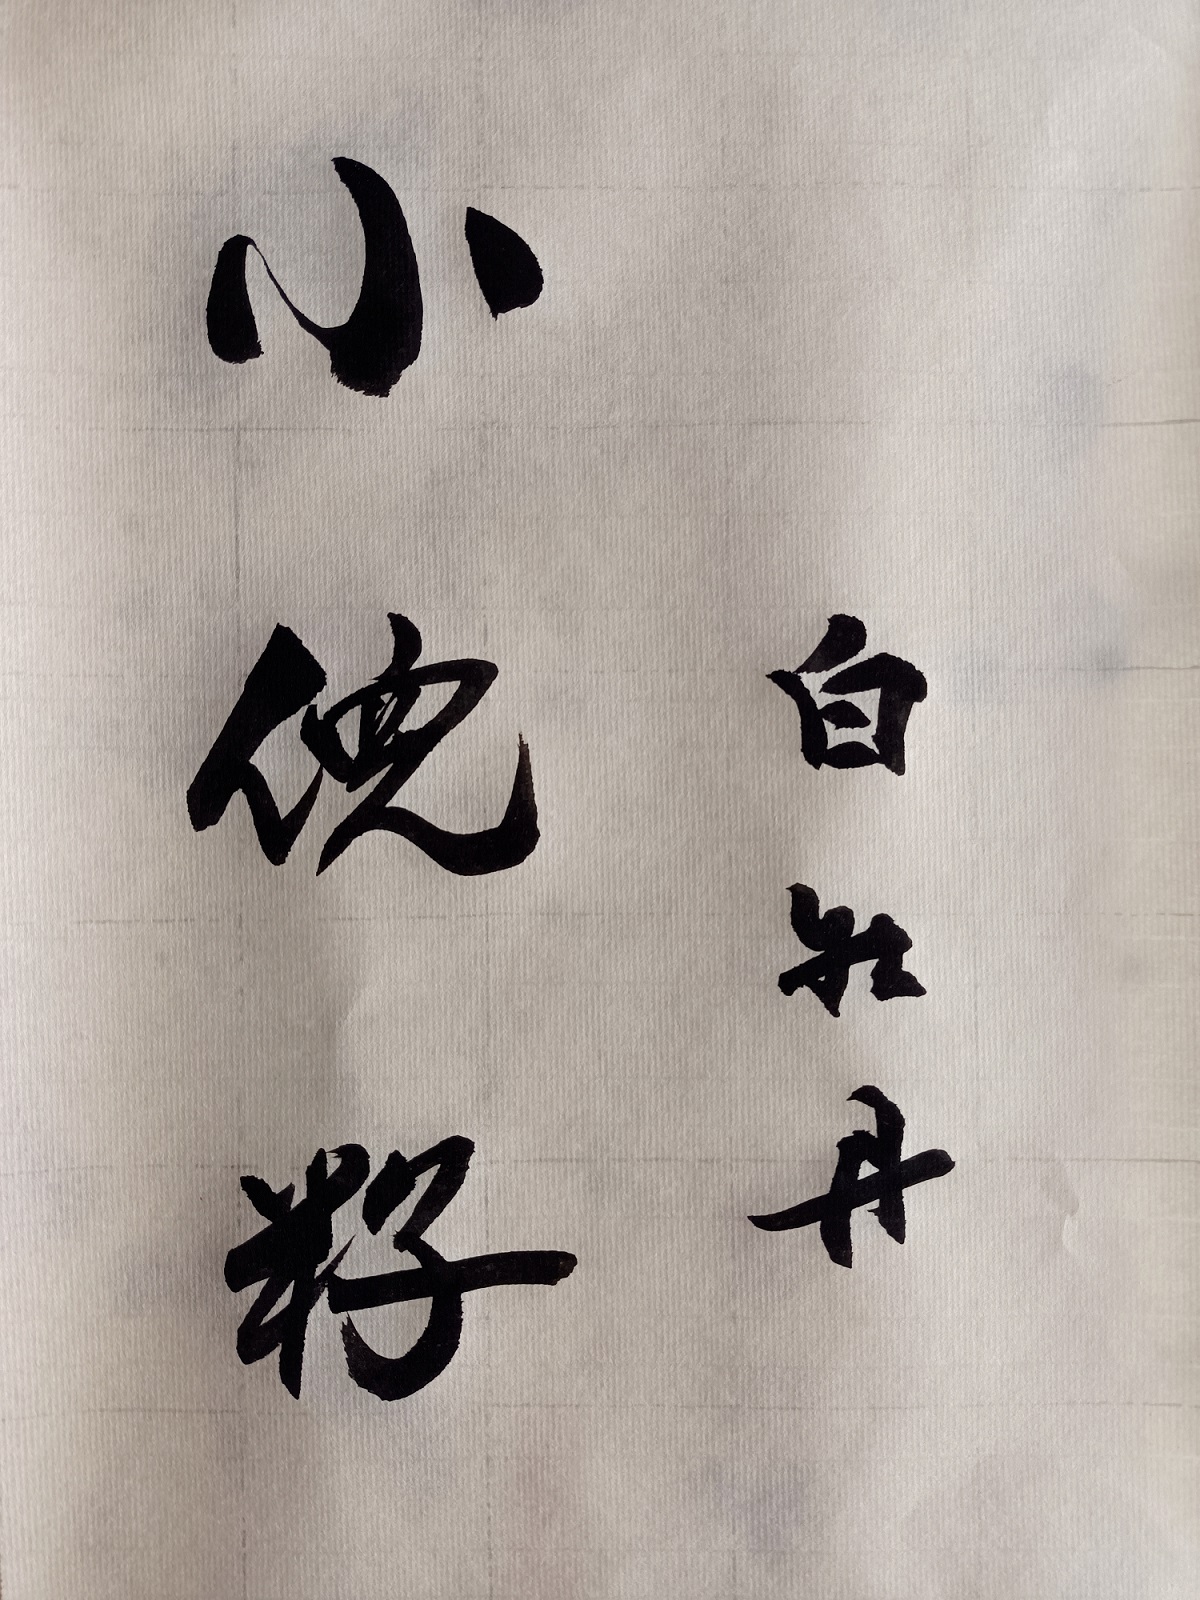 白牡丹
小傀籽